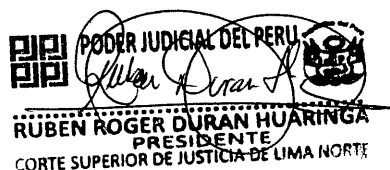 PJ PODER JUDICIAL DEL PERU
PJ
Ruben Duran H
RUBEN ROGER DURAN HUARINGA
PRESIDENTE
CORTE SUPERIOR DE JUSTICIA DE LIMA NORTE